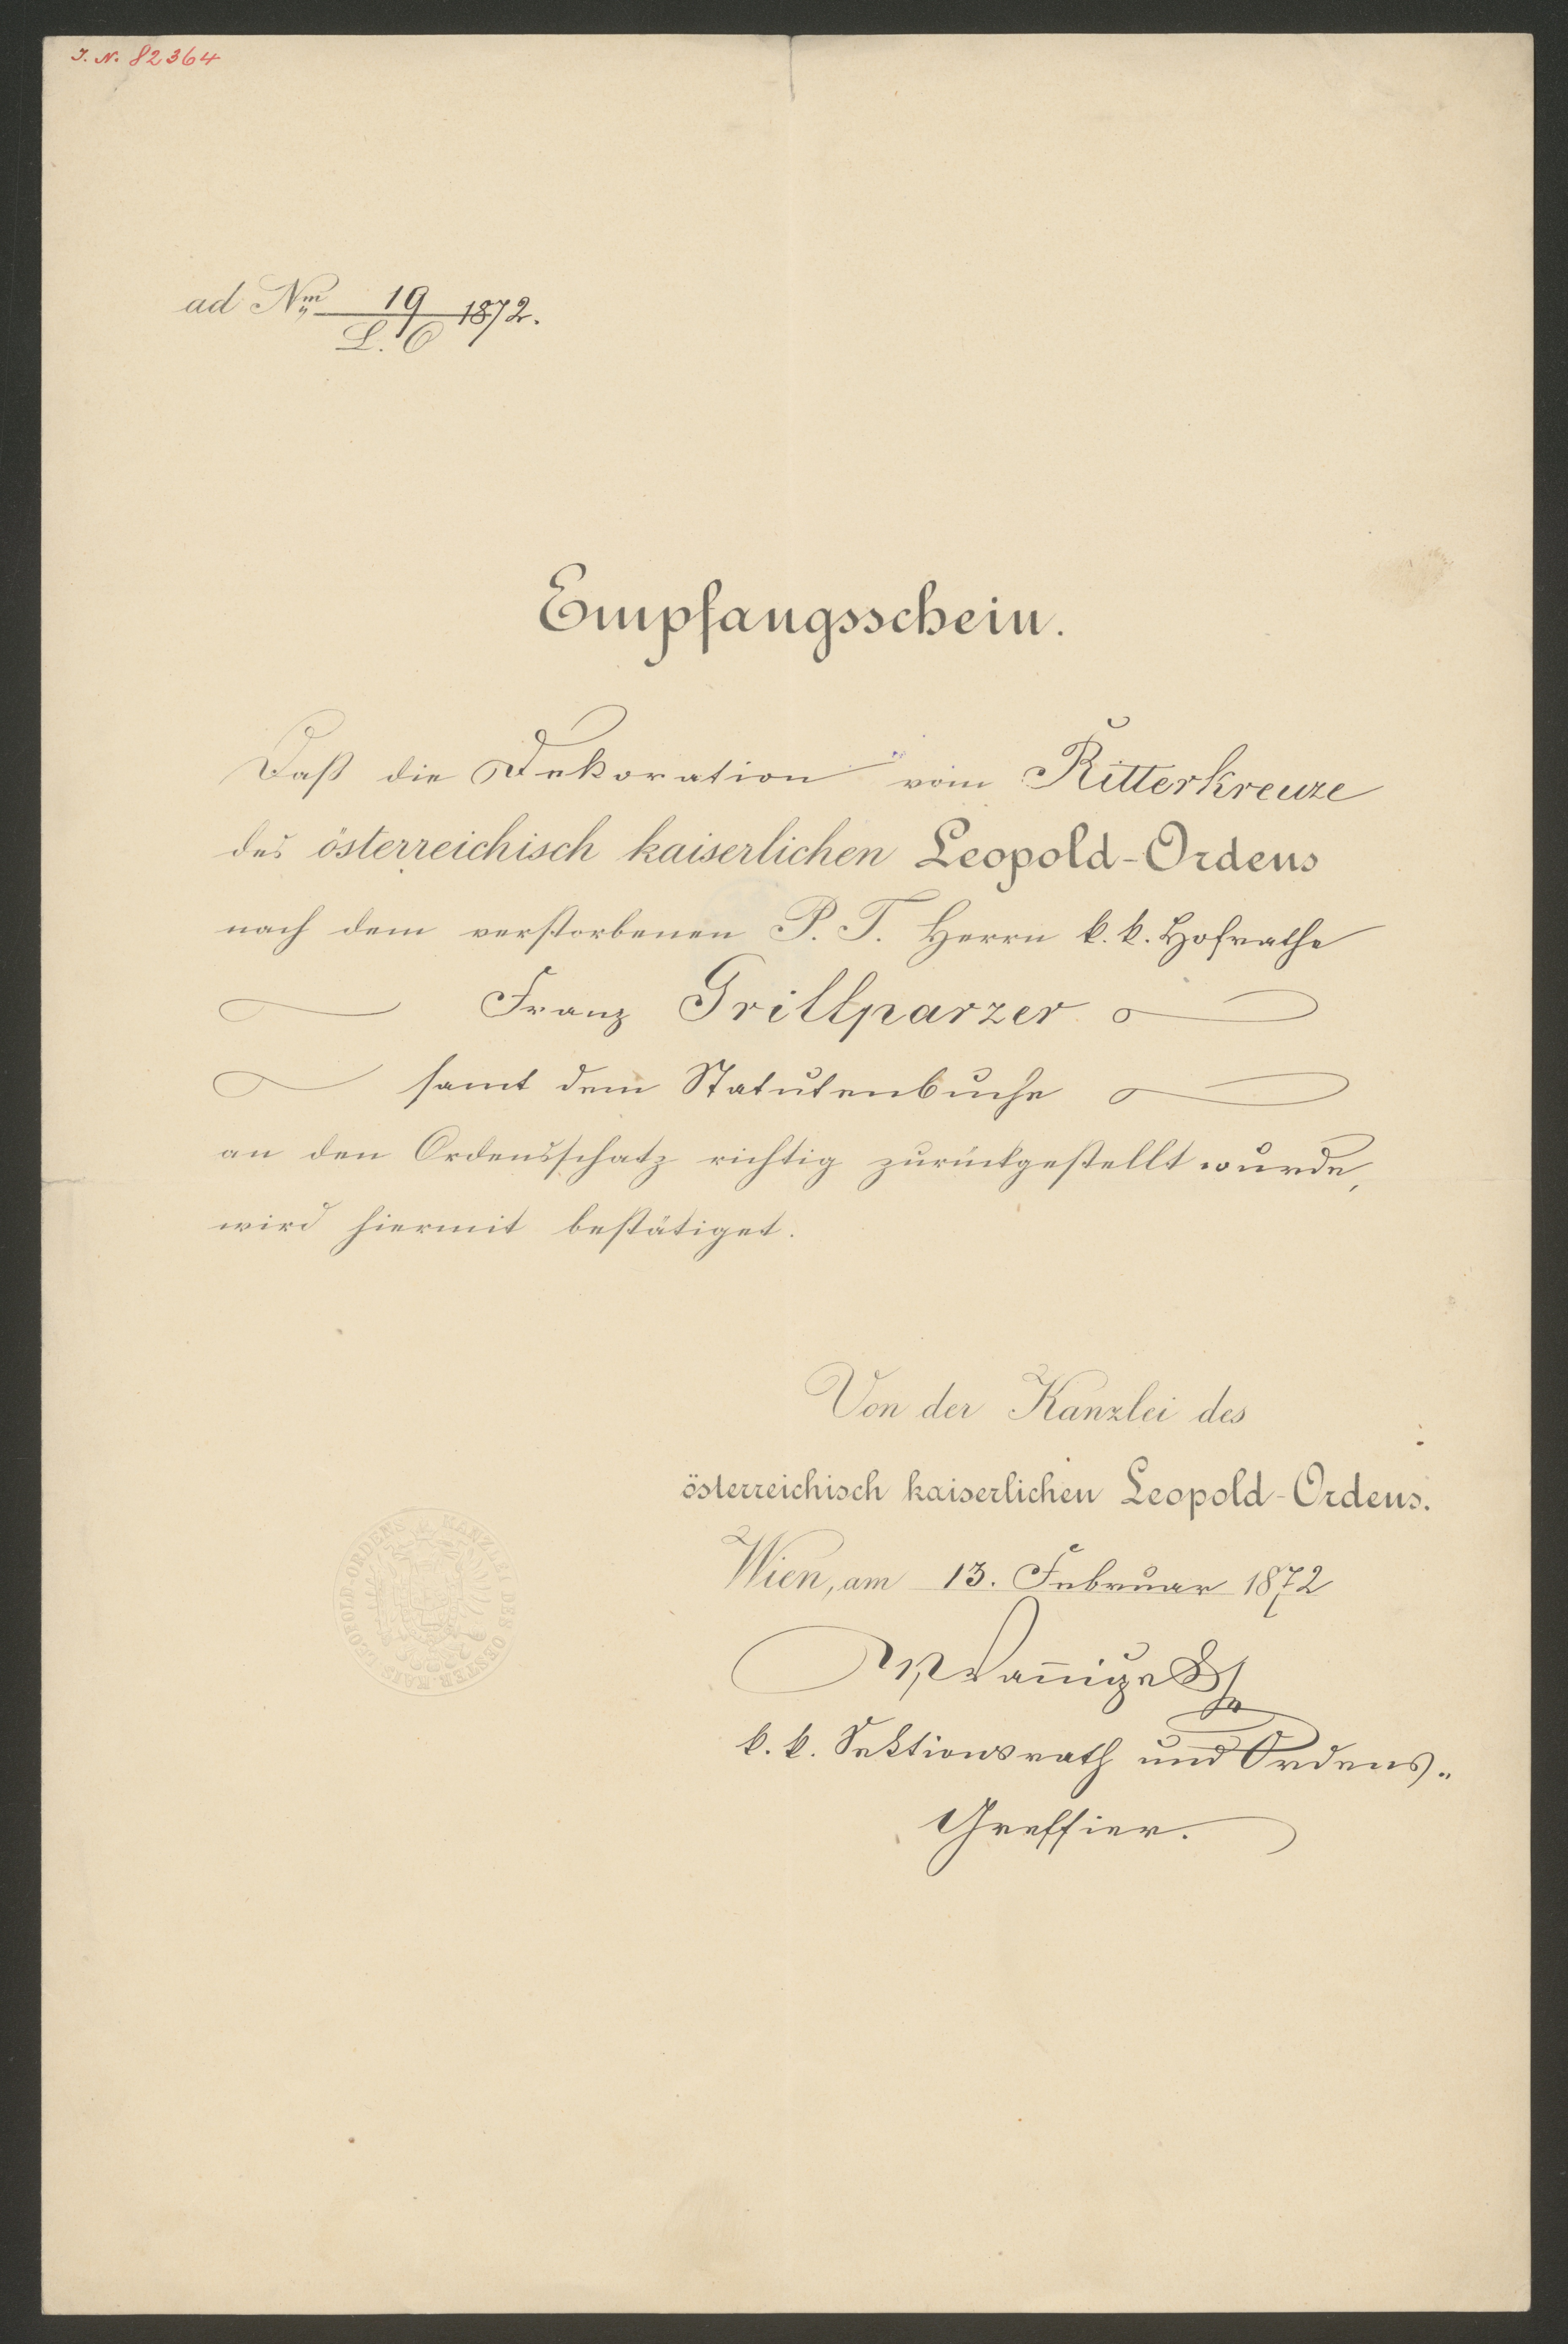 I. N. 82364
ad Nrm 19 1872.
L. O
Empfangsschein.
Daß die Dekoration vom Ritterkreuze
des österreichisch kaiserlichen Leopold-Ordens
nach dem verstorbenen P. T. Herrn k. k. Hofrathe
Franz Grillparzer
samt dem Statutenbuche
an den Ordensschatz richtig zurückgestellt wurde,
wird hiermit bestätiget.
Von der Kanzlei des
österreichisch kaiserlichen Leopold-Ordens.
Wien, am 13. Februar 1872
k. k. Sektionsrath und Ordens-
Greffier.
KANZLEI DES OESTER. KAIS. LEOPOLD-ORDENS